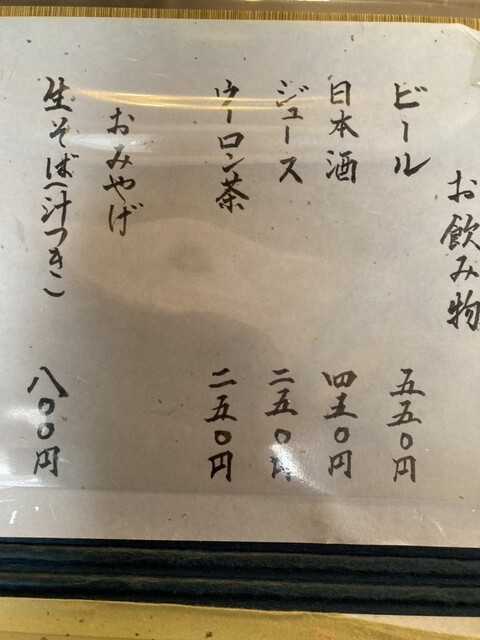 お飲み物
ビール 五五〇円
日本酒 四五〇円
ジュース 二五〇円
ウーロン茶 二五〇円
おみやげ
生そば(汁つき) 八〇〇円